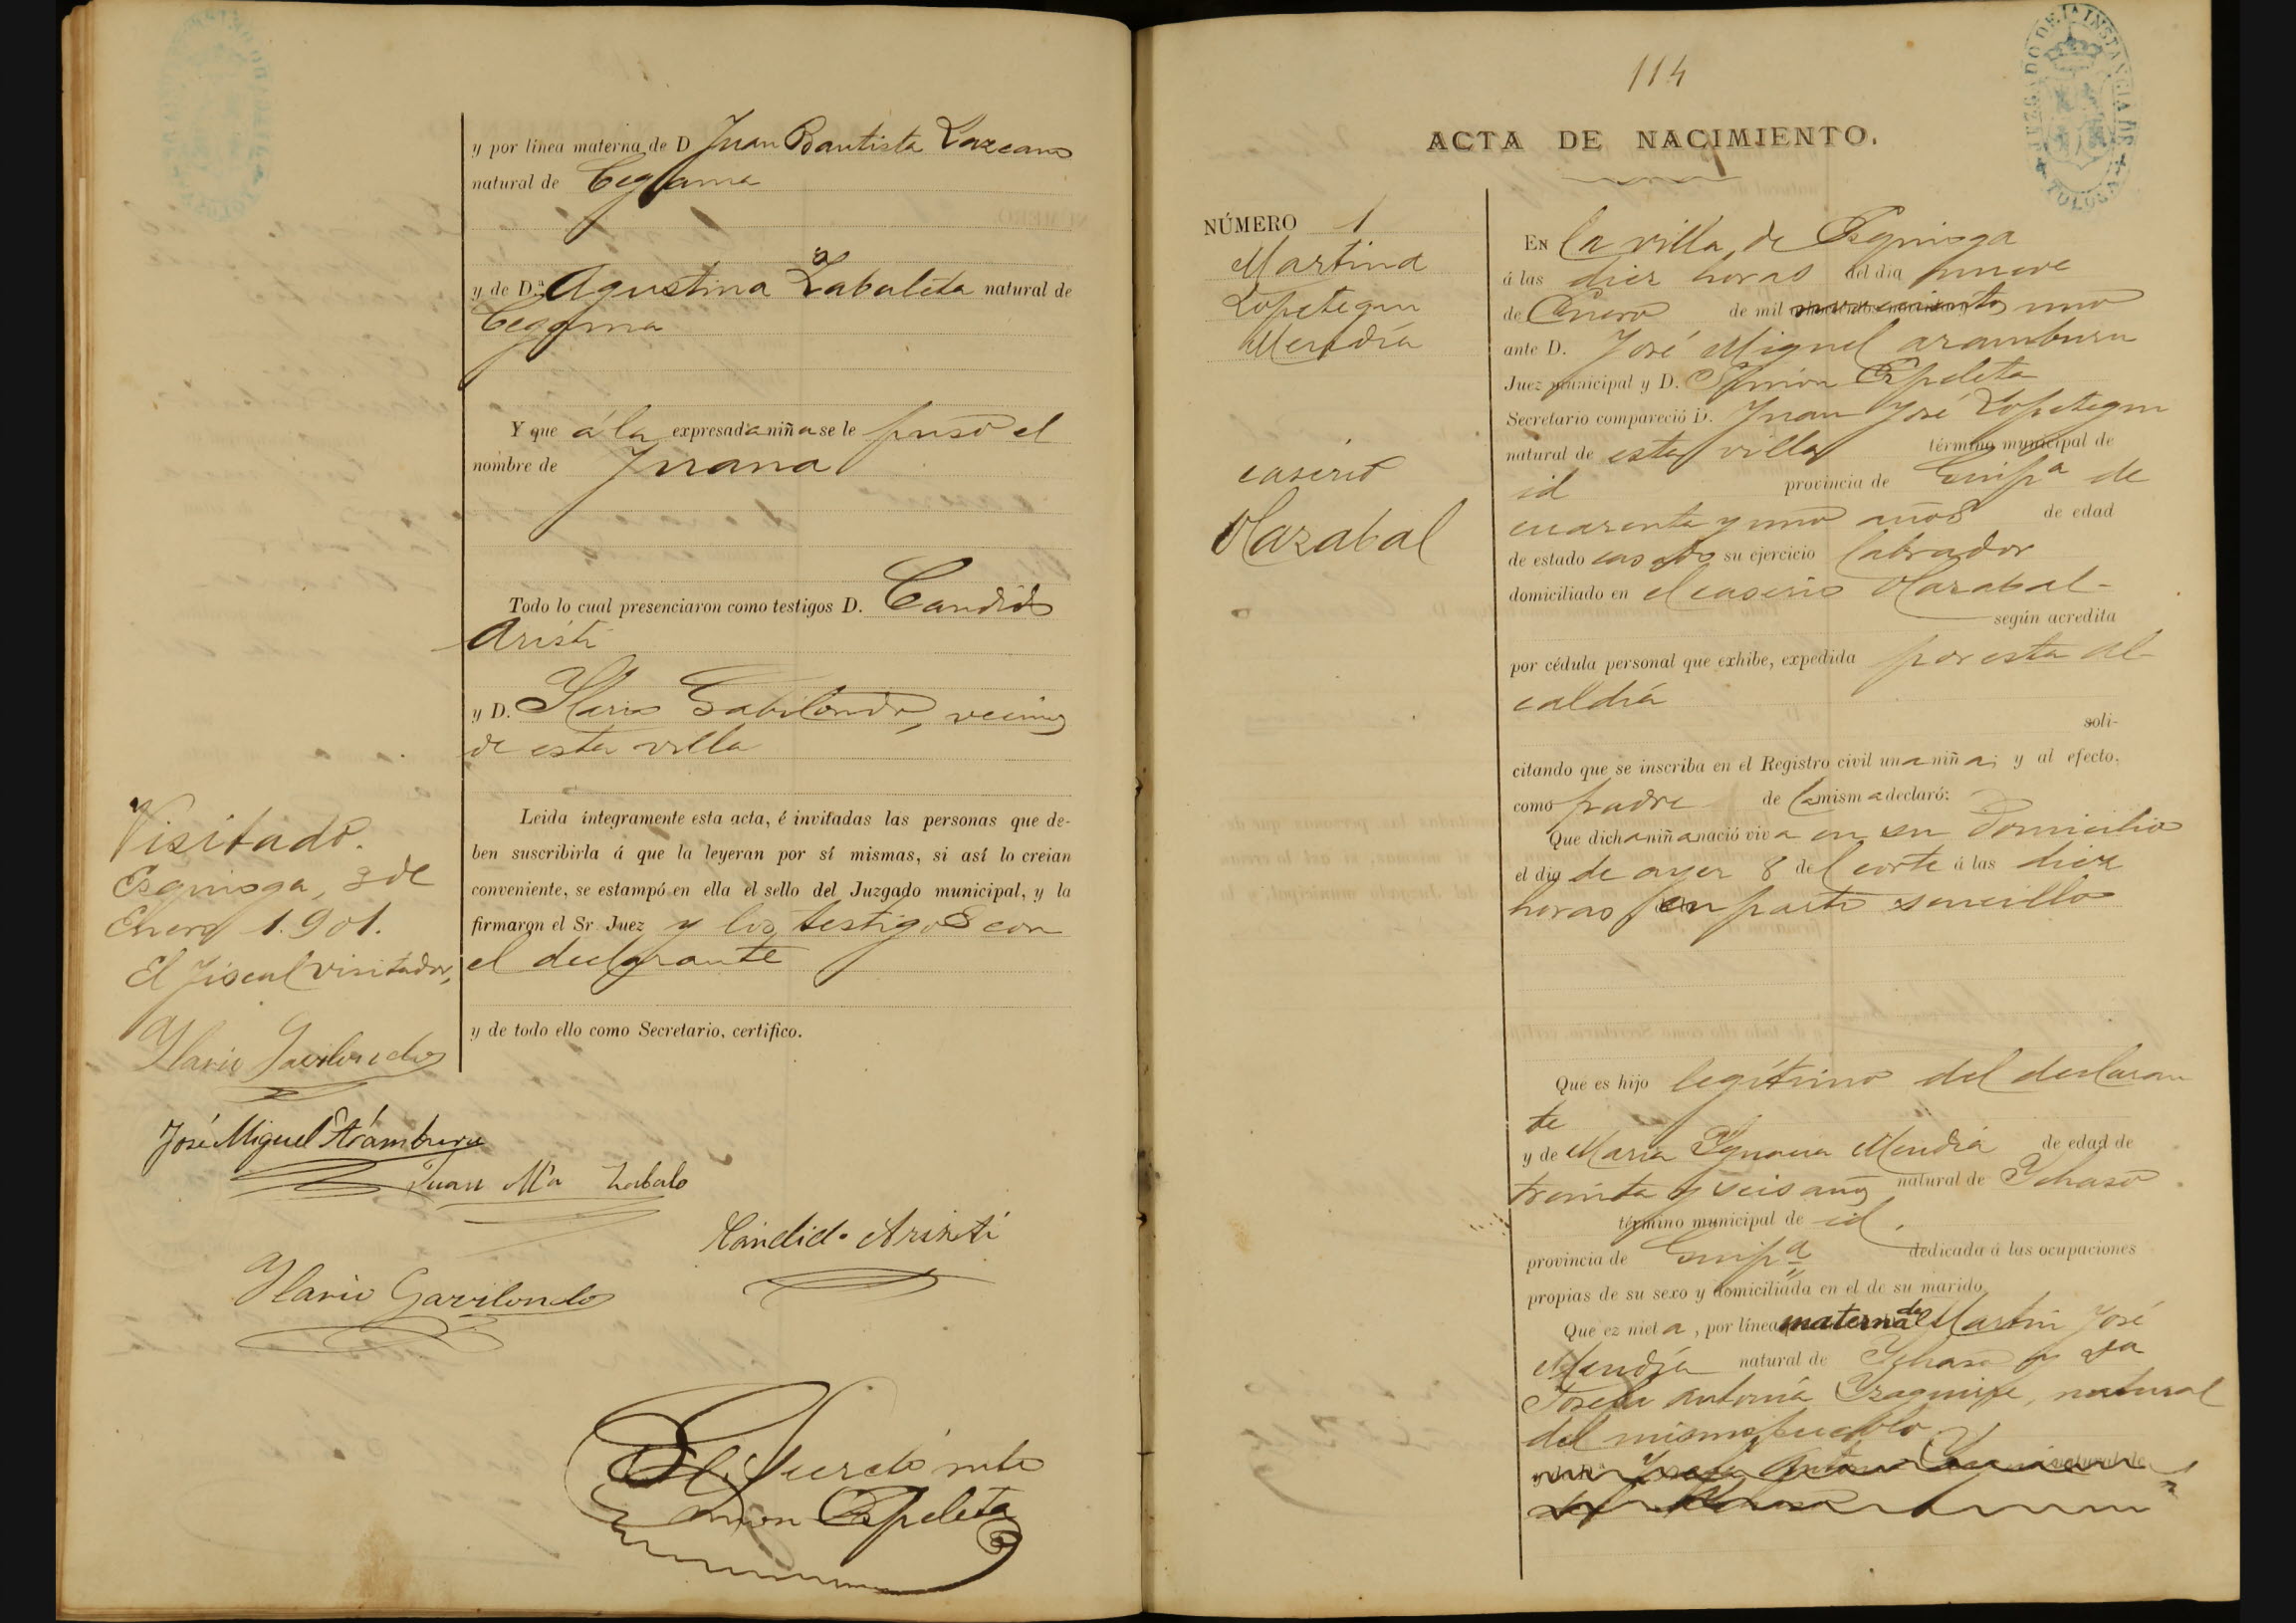 y por línea materna de D Juan Bautista Lazcano
natural de Cegama
y de D.ª Agustina Zabaleta natural de
Cegama
Y que á la expresada niña se le puso el
nombre de Juana
Todo lo cual presenciaron como testigos D. Candido
Aristi
y D. Ilario Gabilondo, vecinos
de esta villa
Leida íntegramente esta acta, é invitadas las personas que de-
ben suscribirla á que la leyeran por sí mismas, si así lo creian
conveniente, se estampó en ella el sello del Juzgado municipal, y la
firmaron el Sr. Juez y los testigos con
el declarante
y de todo ello como Secretario, certifico.
Visitado.
Ezquioga, 3 de
Enero 1.901.
El Fiscal visitador,
Ilario Gavilondo
José Miguel Arámburu
Juan Mª Zabalo
Cándido Aristi
Ilario Gavilondo
El Secretario
Simon Ezpeleta
114
ACTA DE NACIMIENTO.
JUZGADO DE 1A INSTANCIA DE TOLOSA
NÚMERO 1
Martina
Lopetegui
Mendía
caserio
Olazabal
EN la villa de Ezquioga
á las diez horas del dia nueve
de Enero de mil novecientos uno
ante D. José Miguel Aramburu
Juez municipal y D. Simón Ezpeleta
Secretario compareció D. Juan José Lopetegui
natural de esta villa término municipal de
id provincia de Guipª de
cuarenta y uno años de edad
de estado casado su ejercicio labrador
domiciliado en el caserio Olazabal-
según acredita
por cédula personal que exhibe, expedida por esta al-
caldía
soli-
citando que se inscriba en el Registro civil una niña; y al efecto,
como padre de la misma declaró:
Que dicha niña nació viva en su domicilio
el dia de ayer 8 del corte á las diez
horas en parto sencillo
Que es hijo legítimo del declaran
te
y de Maria Ygnacia Mendía de edad de
treinta y seis años natural de Ychaso
término municipal de id.
provincia de Guipª dedicada á las ocupaciones
propias de su sexo y domiciliada en el de su marido
Que ez nieta, por línea materna de Martin José
Mendía natural de Ychaso y Dª
Josefa Antonia Yzaguirre, natural
del mismo pueblo